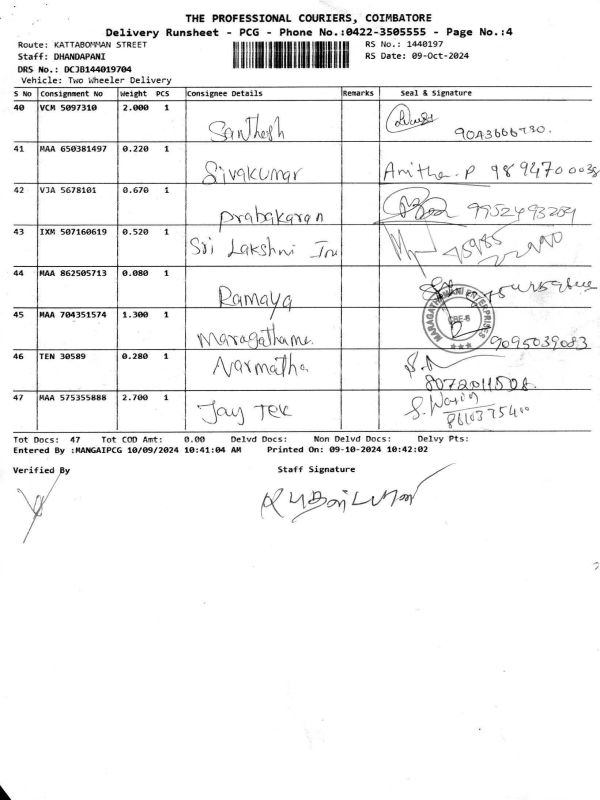 THE PROFESSIONAL COURIERS, COIMBATORE
Delivery Runsheet - PCG - Phone No.:0422-3505555 - Page No.:4
Route: KATTABOMMAN STREET RS No.: 1440197
Staff: DHANDAPANI RS Date: 09-Oct-2024
DRS No.: DCJB144019704
Vehicle: Two Wheeler Delivery
S No Consignment No Weight PCS Consignee Details Remarks Seal & Signature
40 VCM 5097310 2.000 1
Santhosh
41 MAA 650381497 0.220 1
Sivakumar Anitha.P
42 VJA 5678101 0.670 1
Prabakaran 9952493204
43 IXM 507160619 0.520 1
Sri Lakshmi
44 MAA 862505713 0.080 1
Ramaya
45 MAA 704351574 1.300 1
MARAGATHAMANI ENTERPRISES CBE-6
9095039083
46 TEN 30589 0.280 1
Narmatha
8072011508
47 MAA 575355888 2.700 1
Jay Tex
8610375400
Tot Docs: 47 Tot COD Amt: 0.00 Delvd Docs: Non Delvd Docs: Delvy Pts:
Entered By :MANGAIPCG 10/09/2024 10:41:04 AM Printed On: 09-10-2024 10:42:02
Verified By Staff Signature